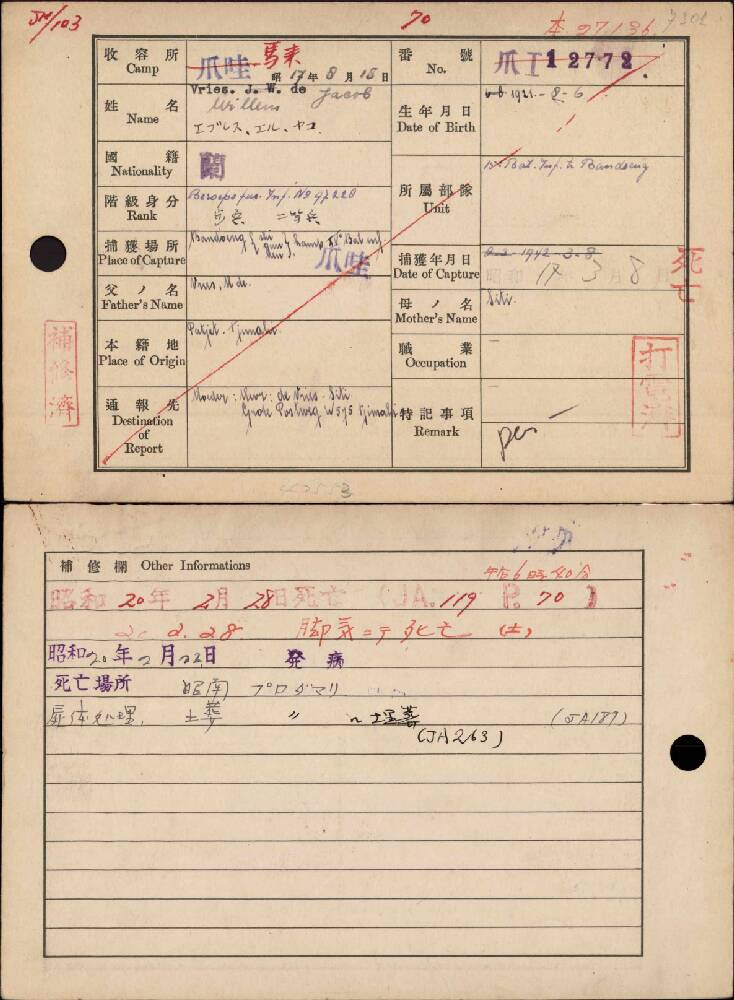 JM/103
70
本 27136
7302
收容所 Camp
爪哇 馬来
昭 17年 8月 15日
番號 No.
爪 I 12772
姓名 Name
Vries. J. W. de
Willem Jacob
生年月日 Date of Birth
1921 - 8 - 6
國籍 Nationality
蘭
階級身分 Rank
Beroeps fus. Inf. No 97228
步兵 二等兵
所屬部隊 Unit
15e Bat. Inf. te Bandoeng
捕獲場所 Place of Capture
Bandoeng
爪哇
捕獲年月日 Date of Capture
1942 - 3 - 8
昭和 17 3月 8日
死亡
父ノ名 Father's Name
Vries, de
母ノ名 Mother's Name
Siti
本籍地 Place of Origin
Tjimahi
職業 Occupation
通報先 Destination of Report
Moeder: Mevr. de Vries - Siti
Groote Postweg W 595 Tjimahi
特記事項 Remark
補修濟
補修欄 Other Informations
午后6時40分
昭和 20年 2月 28日死亡 (JA. 119 P. 70)
20 2. 28 脚気ニテ死亡 (土)
昭和20年2月22日 発病
死亡場所 昭南
屍体処理、土葬 〃 埋葬 (JA187)
(JA263)